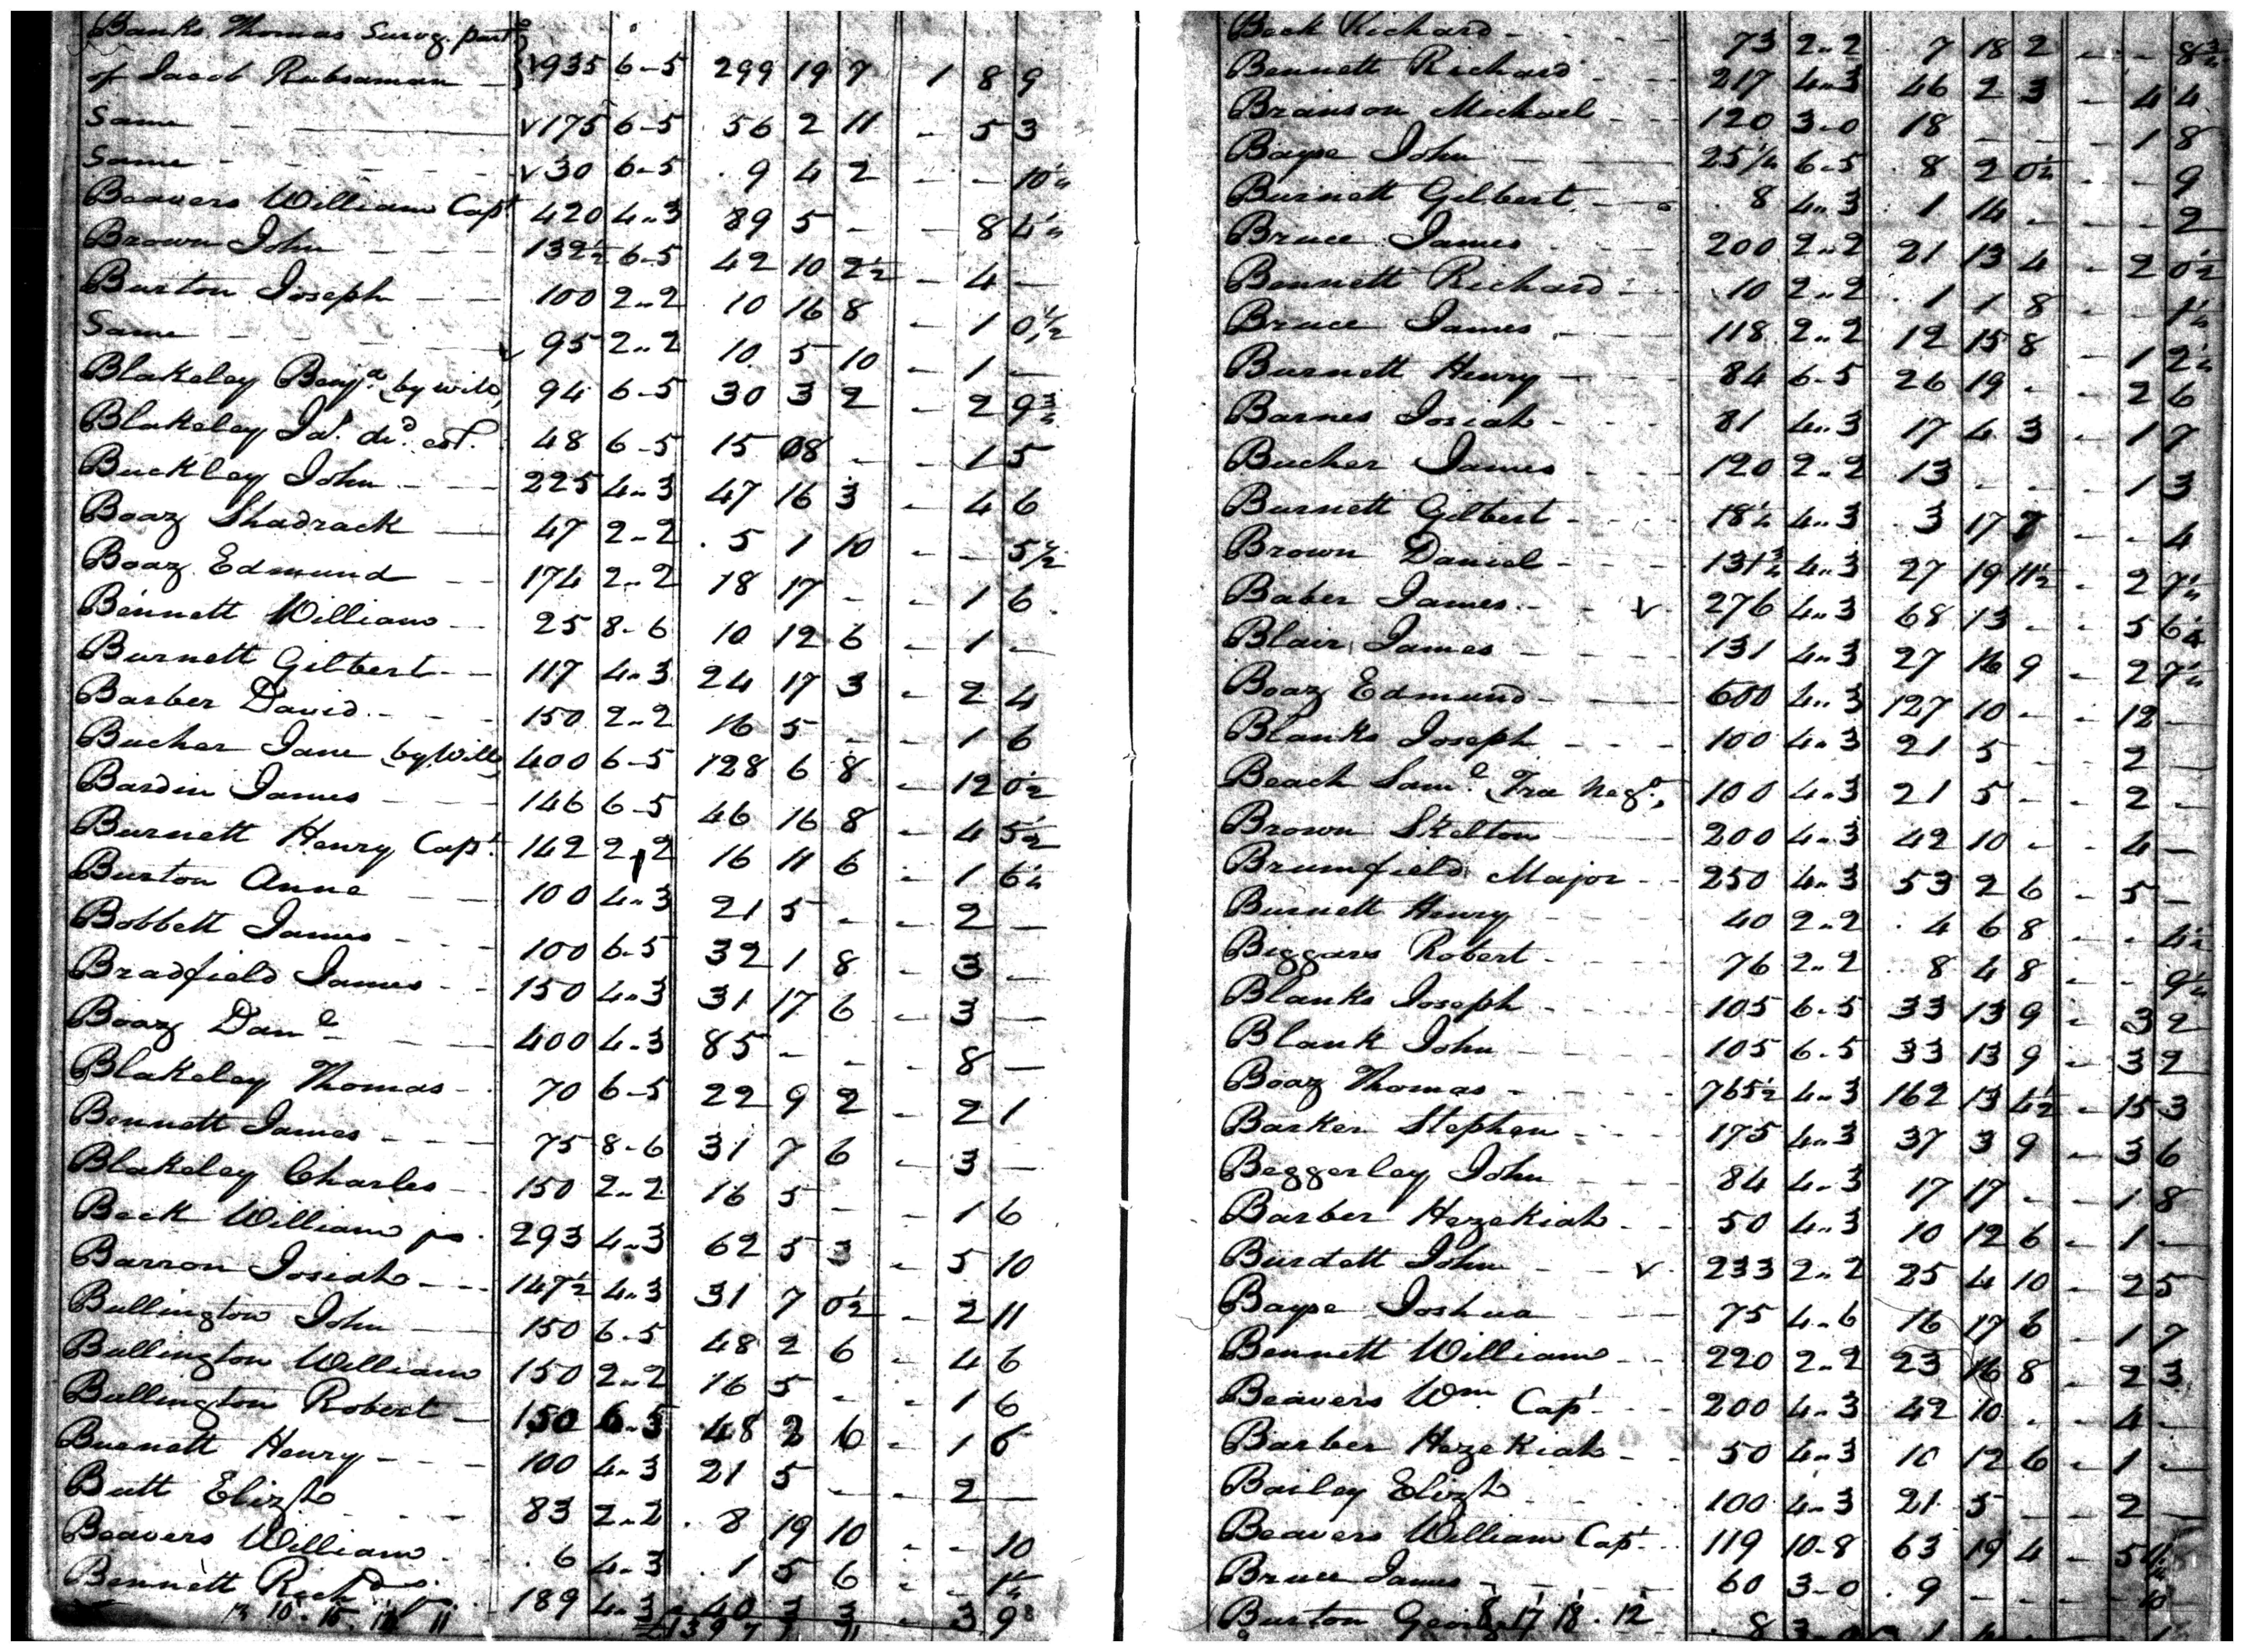 Banks Thomas Survg. part
of Jacob Rubsaman 935 6-5 299 19 7 1 8 9
Same 175 6-5 56 2 11 - 5 3
Same 30 6-5 9 4 2 - - 10¼
Beavers William Capt 420 4-3 89 5 - - 8 4¼
Brown John 132½ 6-5 42 10 2½ - 4 -
Burton Joseph 100 2-2 10 16 8 - 1 0½
Same 95 2-2 10 5 10 - 1 -
Blakeley Benja. by will 94 6-5 30 3 2 - 2 9¾
Blakeley Ja. dec'd. est. 48 6-5 15 08 - - 1 5
Buckley John 225 4-3 47 16 3 - 4 6
Boaz Shadrack 47 2-2 5 1 10 - - 5½
Boaz Edmund 174 2-2 18 17 - - 1 6
Bennett William 25 8-6 10 12 6 - 1 -
Burnett Gilbert 117 4-3 24 17 3 - 2 4
Barber David 150 2-2 16 5 - - 1 6
Bucher Jane by Will 400 6-5 128 6 8 - 12 0½
Bardin James 146 6-5 46 16 8 - 4 5½
Burnett Henry Capt. 142 2-2 16 11 6 - 1 6¼
Burton Anne 100 4-3 21 5 - - 2 -
Bobbett James 100 6-5 32 1 8 - 3 -
Bradfield James 150 4-3 31 17 6 - 3 -
Boaz Danl 400 4-3 85 - - - 8 -
Blakeley Thomas 70 6-5 22 9 2 - 2 1
Bennett James 75 8-6 31 7 6 - 3 -
Blakeley Charles 150 2-2 16 5 - - 1 6
Beck William jr. 293 4-3 62 5 3 - 5 10
Barron Josiah 147½ 4-3 31 7 0½ - 2 11
Bullington John 150 6-5 48 2 6 - 4 6
Bullington William 150 2-2 16 5 - - 1 6
Bullington Robert 150 6-5 48 2 6 - 1 6
Burnett Henry 100 4-3 21 5 - - 2 -
Butt Elizth 83 2-2 8 19 10 - - 10
Beavers William 6 4-3 1 5 6 - - 1¼
Bennett Richd. 189 4-3 40 3 3 - 3 9
Beck Richard 73 2-2 7 18 2 - - 8¾
Bennett Richard 217 4-3 46 2 3 - 4 4
Branson Michael 120 3-0 18 - - - 1 8
Bayse John 25¼ 6-5 8 2 0¼ - - 9
Burnett Gilbert 8 4-3 1 14 - - - 2
Bruce James 200 2-2 21 13 4 - 2 0½
Bennett Richard 10 2-2 1 1 8 - - 1¼
Bruce James 118 2-2 12 15 8 - 1 2¼
Burnett Henry 84 6-5 26 19 - - 2 6
Barnes Josiah 81 4-3 17 4 3 - 1 7
Bucher James 120 2-2 13 - - - 1 3
Burnett Gilbert 18¼ 4-3 3 17 7 - - 4
Brown Daniel 131¾ 4-3 27 19 11½ - 2 7¼
Baber James 276 4-3 68 13 - - 5 6¼
Blair James 131 4-3 27 16 9 - 2 7¼
Boaz Edmund 600 4-3 127 10 - - 12 -
Blanks Joseph 100 4-3 21 5 - - 2 -
Beach Saml. Free Nego. 100 4-3 21 5 - - 2 -
Brown Skelton 200 4-3 42 10 - - 4 -
Brumfield Major 250 4-3 53 2 6 - 5 -
Burnett Henry 40 2-2 4 6 8 - - 4½
Biggars Robert 76 2-2 8 4 8 - - 9¼
Blanks Joseph 105 6-5 33 13 9 - 3 2
Blank John 105 6-5 33 13 9 - 3 2
Boaz Thomas 765½ 4-3 162 13 4½ - 15 3
Barker Stephen 175 4-3 37 3 9 - 3 6
Beggerley John 84 4-3 17 17 - - 1 8
Barber Hezekiah 50 4-3 10 12 6 - 1 -
Burdett John 233 2-2 25 4 10 - 2 5
Bayse Joshua 75 4-6 16 17 6 - 1 7
Bennett William 220 2-2 23 16 8 - 2 3
Beavers Wm. Capt. 200 4-3 42 10 - - 4 -
Barber Hezekiah 50 4-3 10 12 6 - 1 -
Bailey Elizth 100 4-3 21 5 - - 2 -
Beavers William Capt. 119 10-8 63 19 4 - 5
Bruce James 60 3-0 9 - - - - 10
Burton George 8